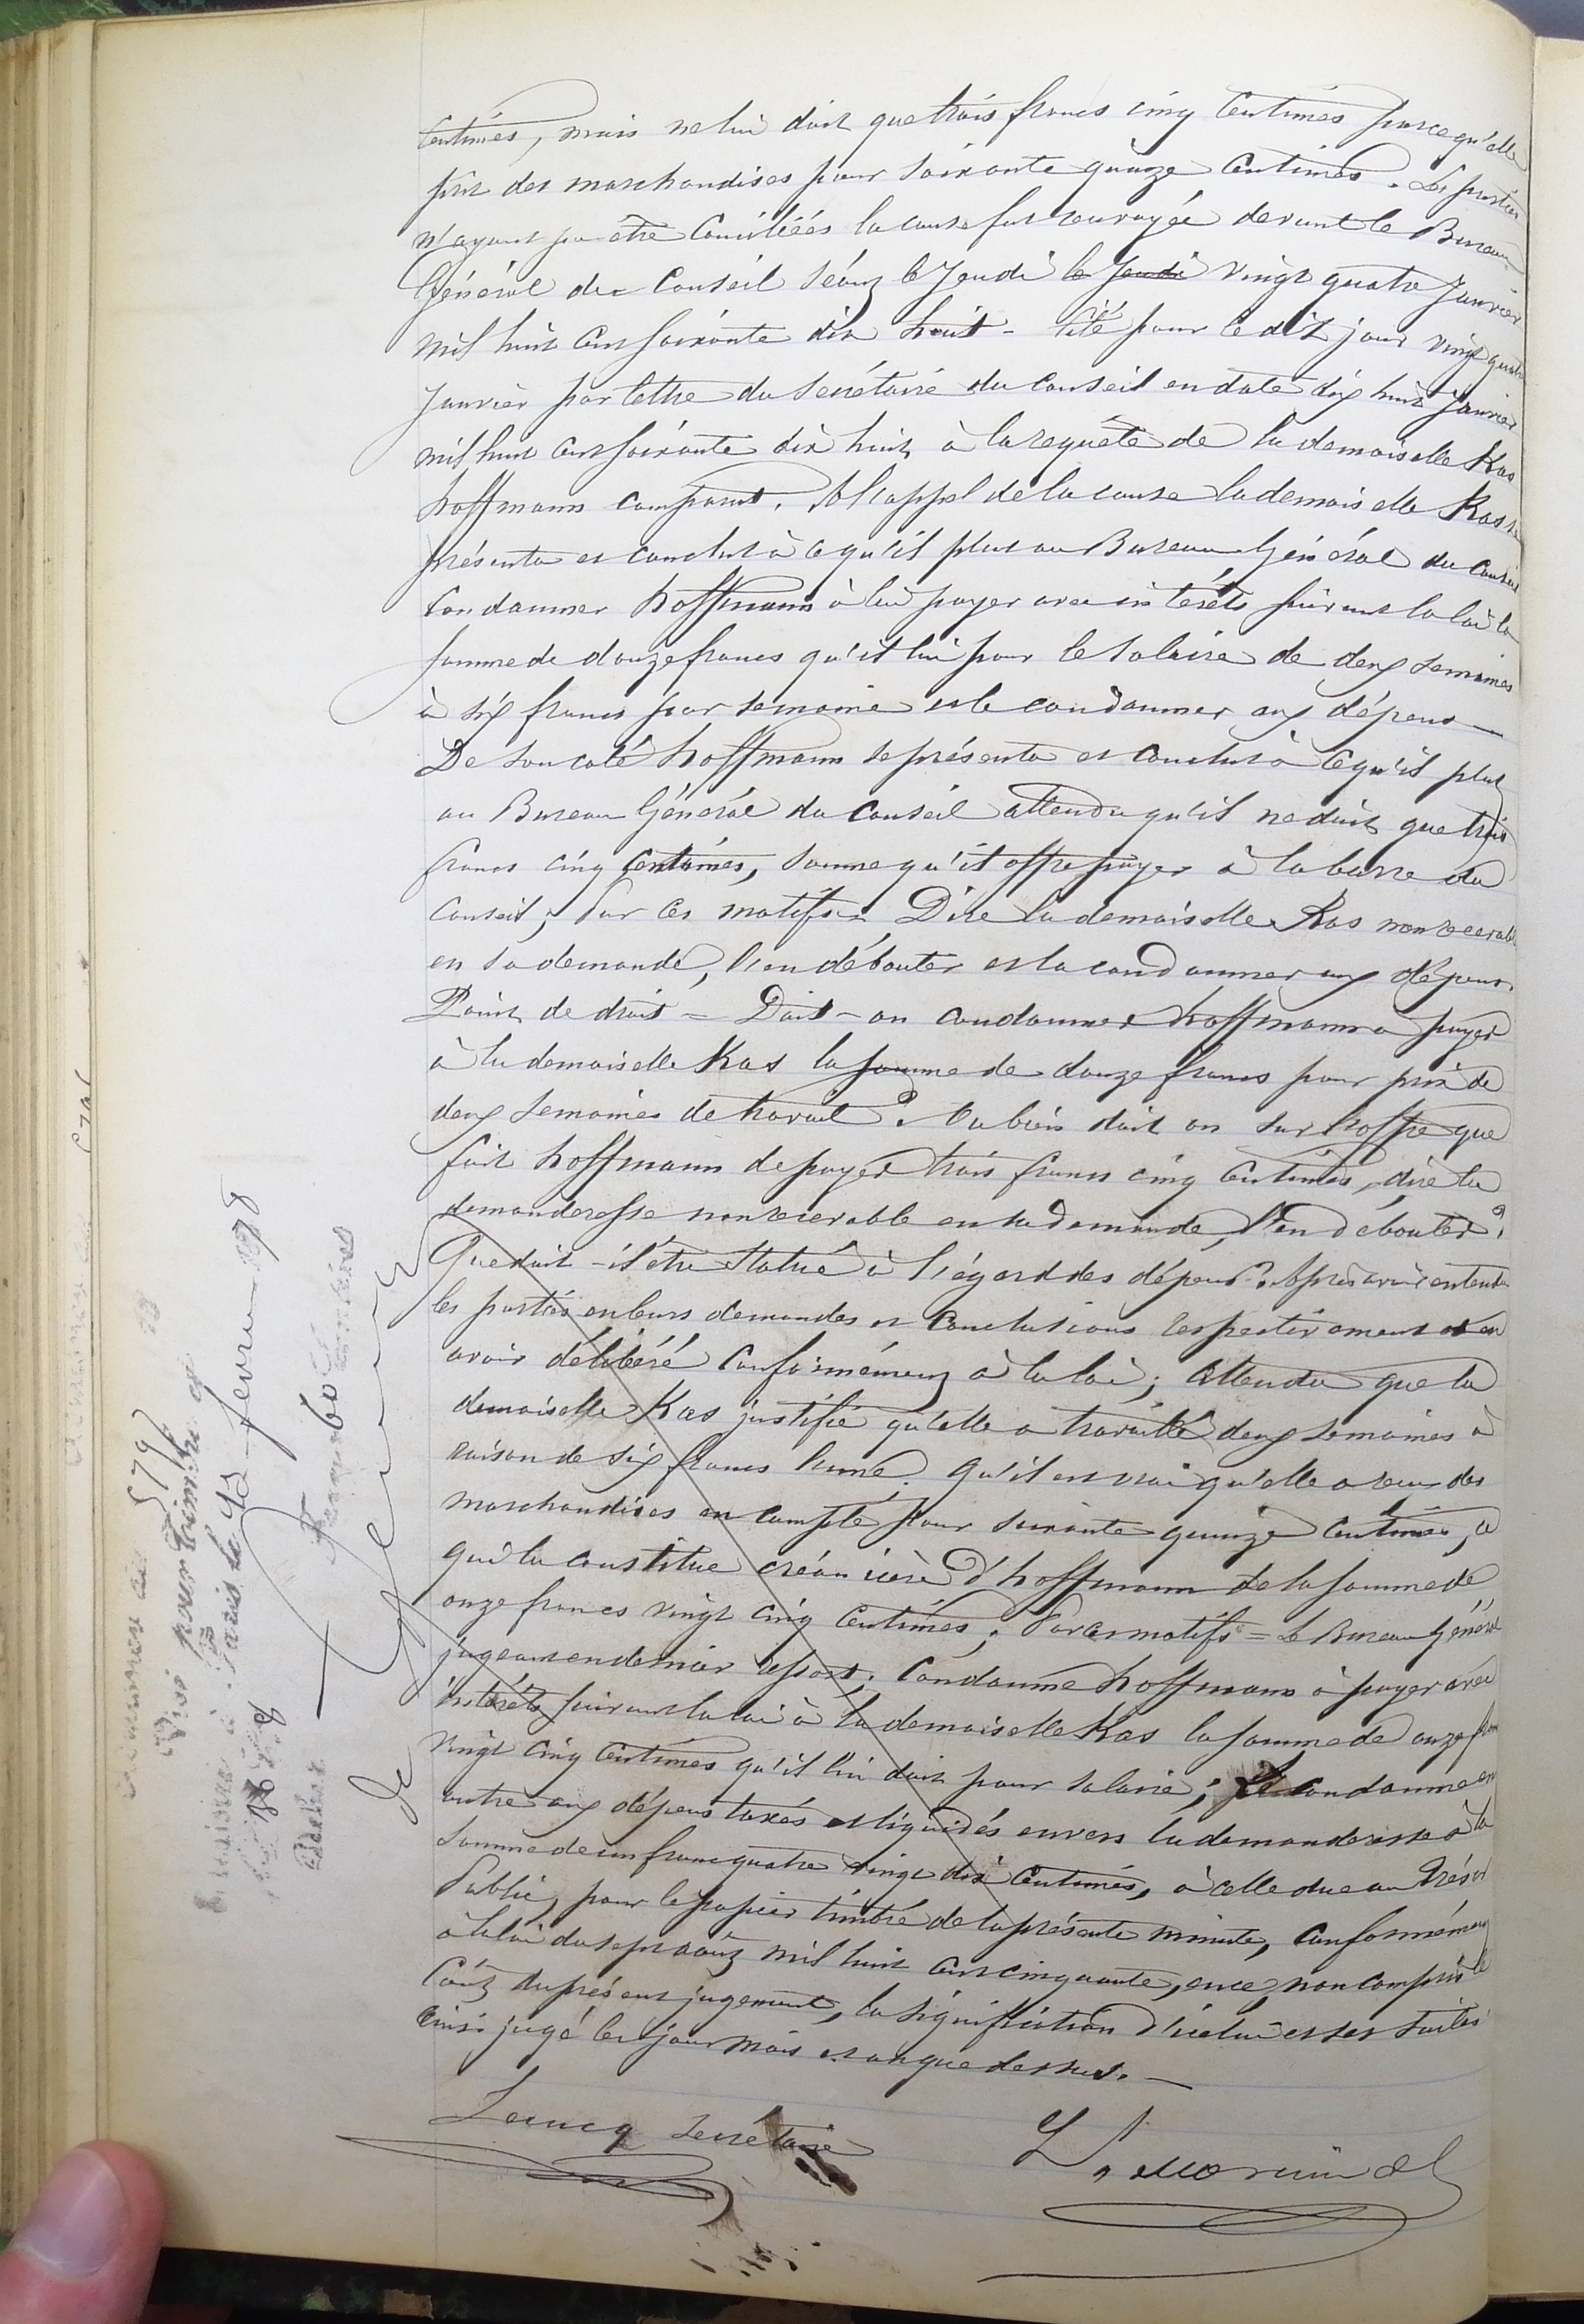 centimes, mais ne lui doit que trois francs cinq centimes parce qu'elle
prit des marchandises pour soixante quinze centimes. Les parties
n'ayant pu être conciliées la cause fut renvoyée devant le Bureau
Général du Conseil séant le Jeudi le Jeudi vingt quatre Janvier
mil huit cent soixante dix huit - Cité pour le dit jour vingt quatre
Janvier par lettre du secrétaire du Conseil en date dix huit Janvier
mil huit cent soixante dix huit, à la requête de la demoiselle Kas
hoffmann comparut. A l'appel de la cause la demoiselle Kas se
présenta et conclut à ce qu'il plut au Bureau Général du Conseil
condamner hoffmann à lui payer avec intérêts suivant la loi la
somme de douze francs qu'il lui pour le salaire de deux semaines
à six francs par semaine et le condamner aux dépens —
De son coté hoffmann se présenta et conclut à ce qu'il plut
au Bureau Général du Conseil attendu qu'il ne doit que trois
francs cinq centimes, somme qu'il offre payer à la barre du
Conseil; Par ces motifs = Dire la demoiselle Kas non recevable
en sa demande, l'en débouter et la condamner aux dépens.
Point de droit = Doit-on condamner hoffmann a payer
à la demoiselle Kas la somme de douze francs pour prix de
deux semaines de travail? Ou bien doit on sur l'offre que
fait hoffmann de payer trois francs cinq centimes, dire la
demanderesse non recevable en sa demande, l'en débouter?
Que doit-il être statué à l'égard des dépens? Après avoir entendu
les parties en leurs demandes et conclusions respectivement et en
avoir délibéré conformément à la loi; attendu que la
demoiselle Kas justifie qu'elle a travaillé deux semaines à
raison de six francs l'une. Qu'il est vrai qu'elle a reçu des
marchandises en compte pour soixante quinze centimes, ce
qui la constitue créancière d'hoffmann de la somme de
onze francs vingt cinq centimes; Par ces motifs = Le Bureau Général
jugeant en dernier ressort; Condamne hoffmann à payer avec
intérêts suivant la loi à la demoiselle Kas la somme de onze francs
vingt cinq centimes qu'il lui doit pour salaire; Le condamne en
outre aux dépens taxés et liquidés envers la demanderesse à la
somme de un franc quatre vingt dix centimes, à celle due au Trésor
Public, pour le papier timbré de la présente minute, conformément
à la loi du sept août mil huit cent cinquante, en ce non compris le
coût du présent jugement, la signification d'icelui et ses suites
Ainsi jugé les jour mois et an que dessus. —
Lecucq secrétaire